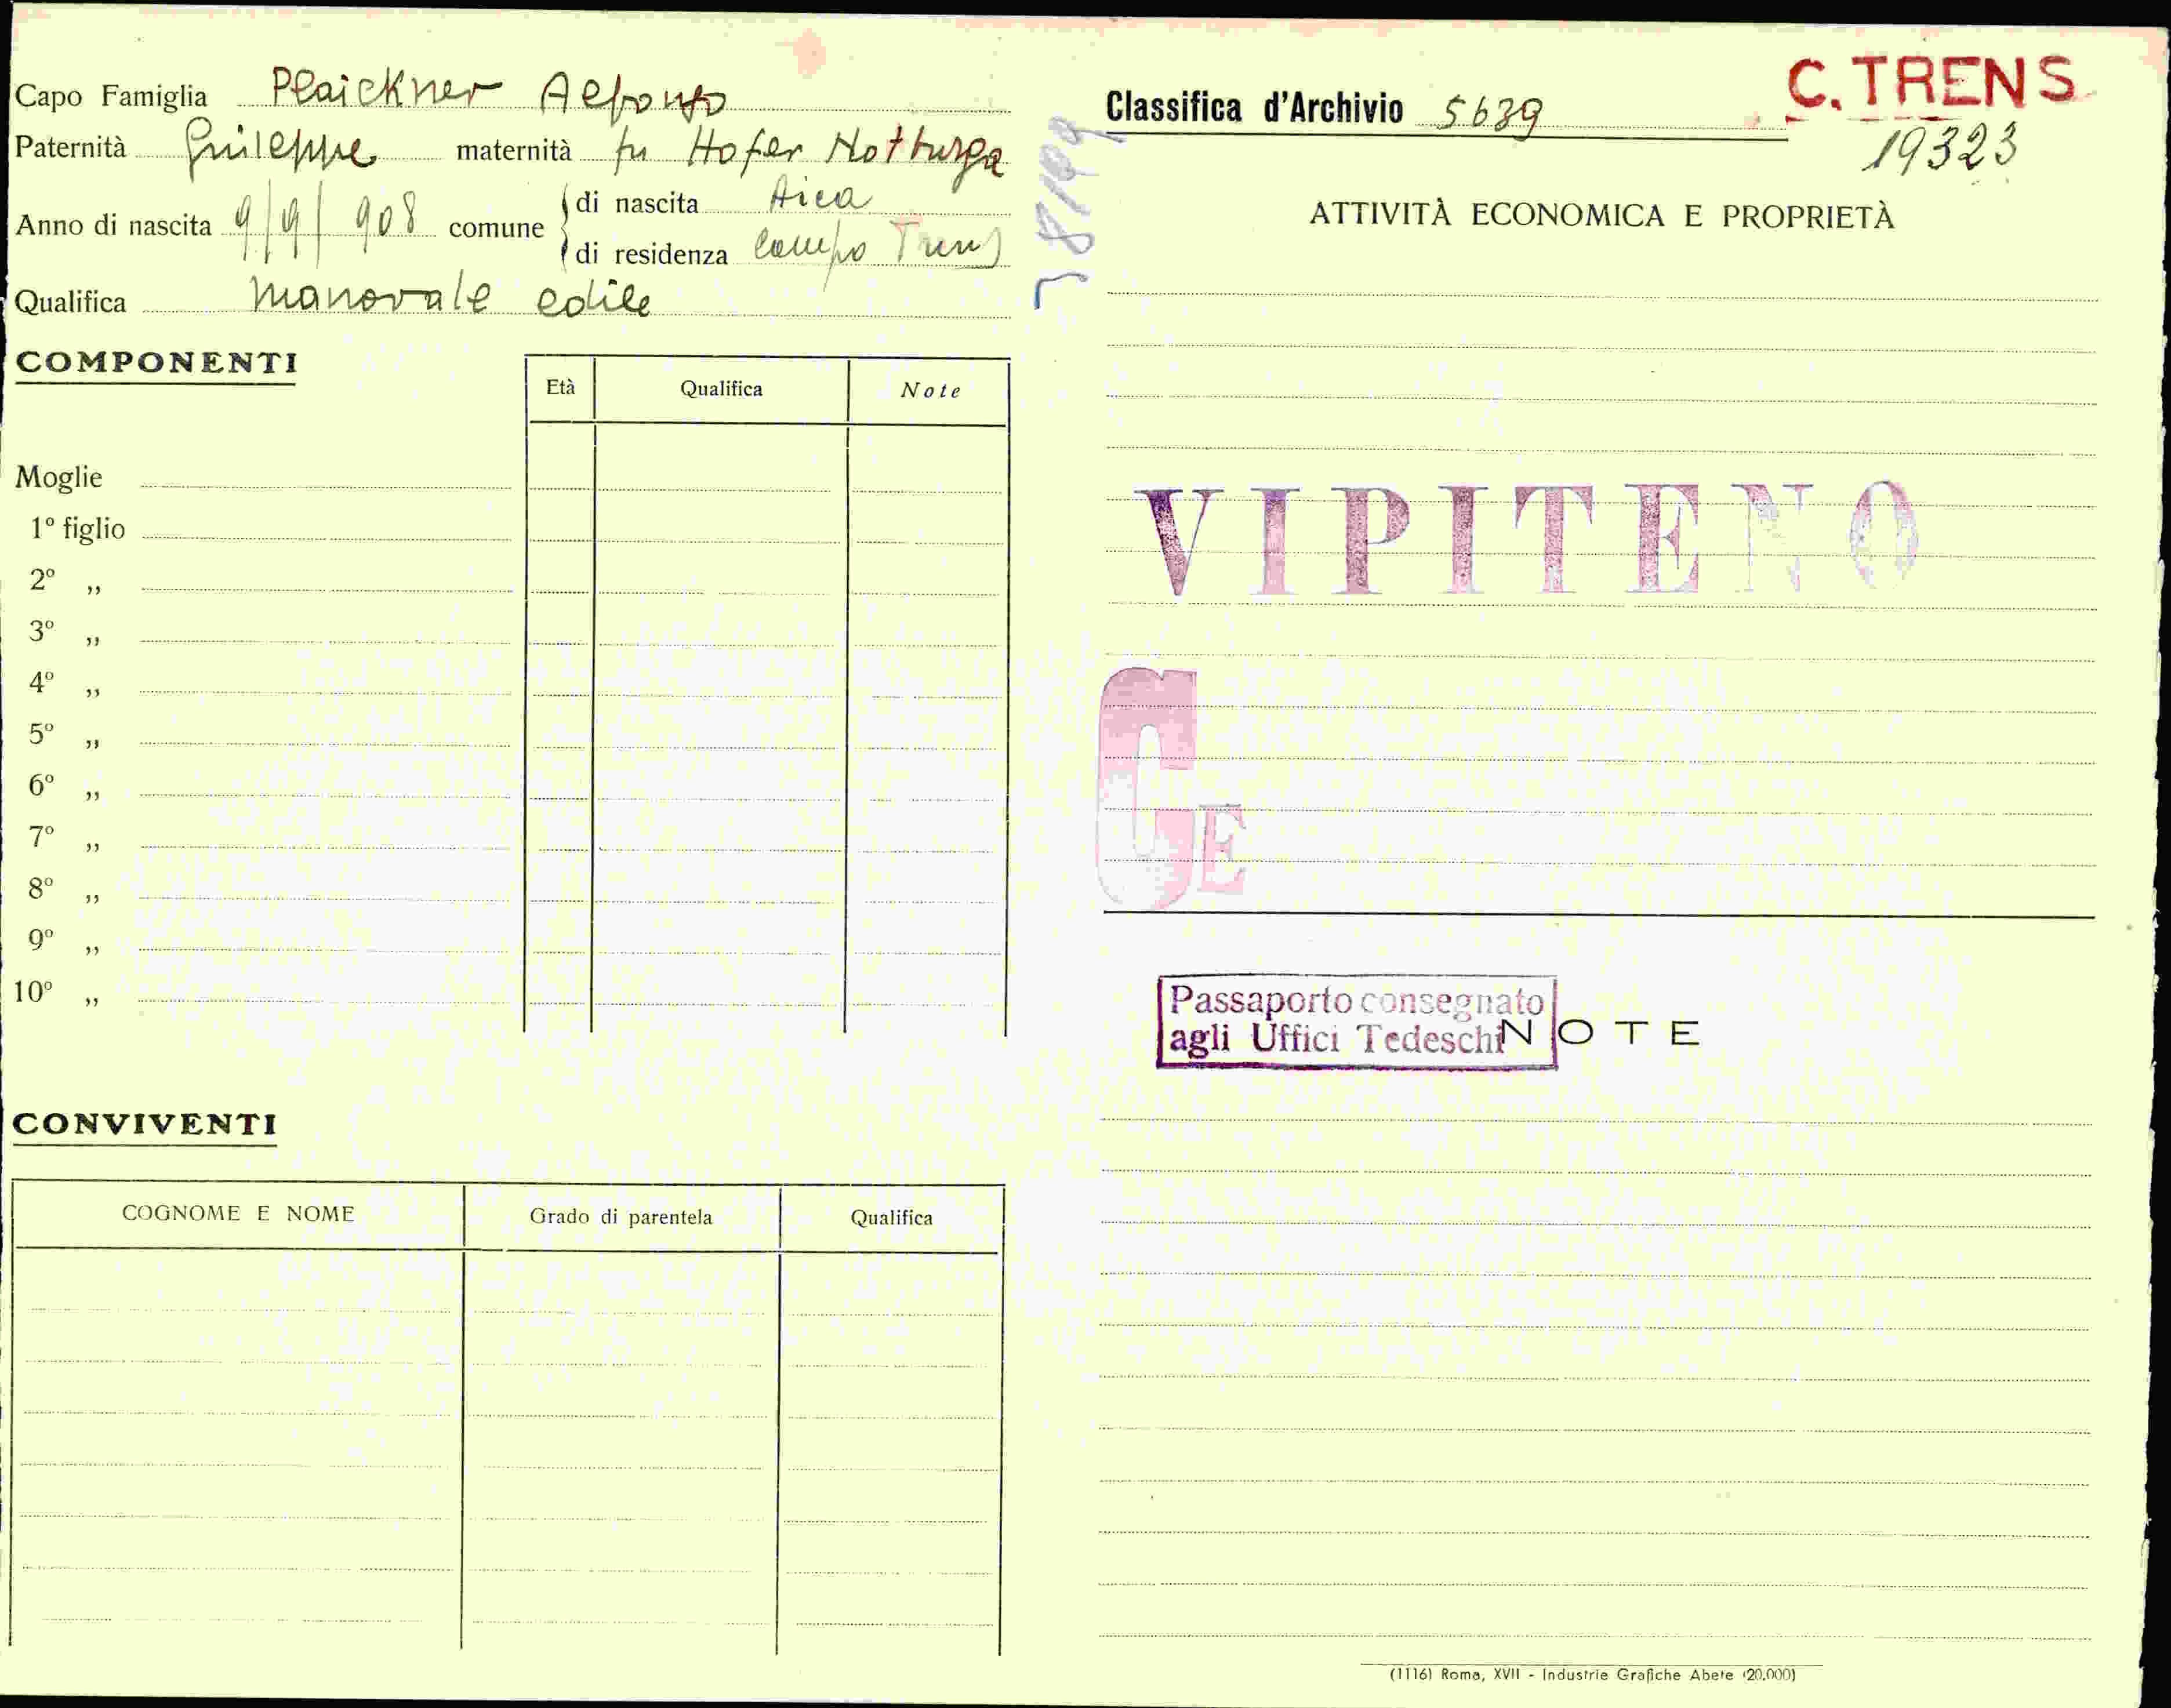 Capo Famiglia Plaickner Alfonso
Paternità Giuseppe maternità fu Hofer Notburga
Anno di nascita 9/9/908 comune di nascita Aica
di residenza Campo Trens
Qualifica manovale edile
COMPONENTI
Età Qualifica Note
Moglie
1º figlio
2º „
3º „
4º „
5º „
6º „
7º „
8º „
9º „
10º „
CONVIVENTI
COGNOME E NOME Grado di parentela Qualifica
C. TRENS
Classifica d'Archivio 5639
19323
ATTIVITÀ ECONOMICA E PROPRIETÀ
VIPITENO
GE
Passaporto consegnato
agli Uffici Tedeschi
NOTE
(1116) Roma, XVII - Industrie Grafiche Abete (20.000)